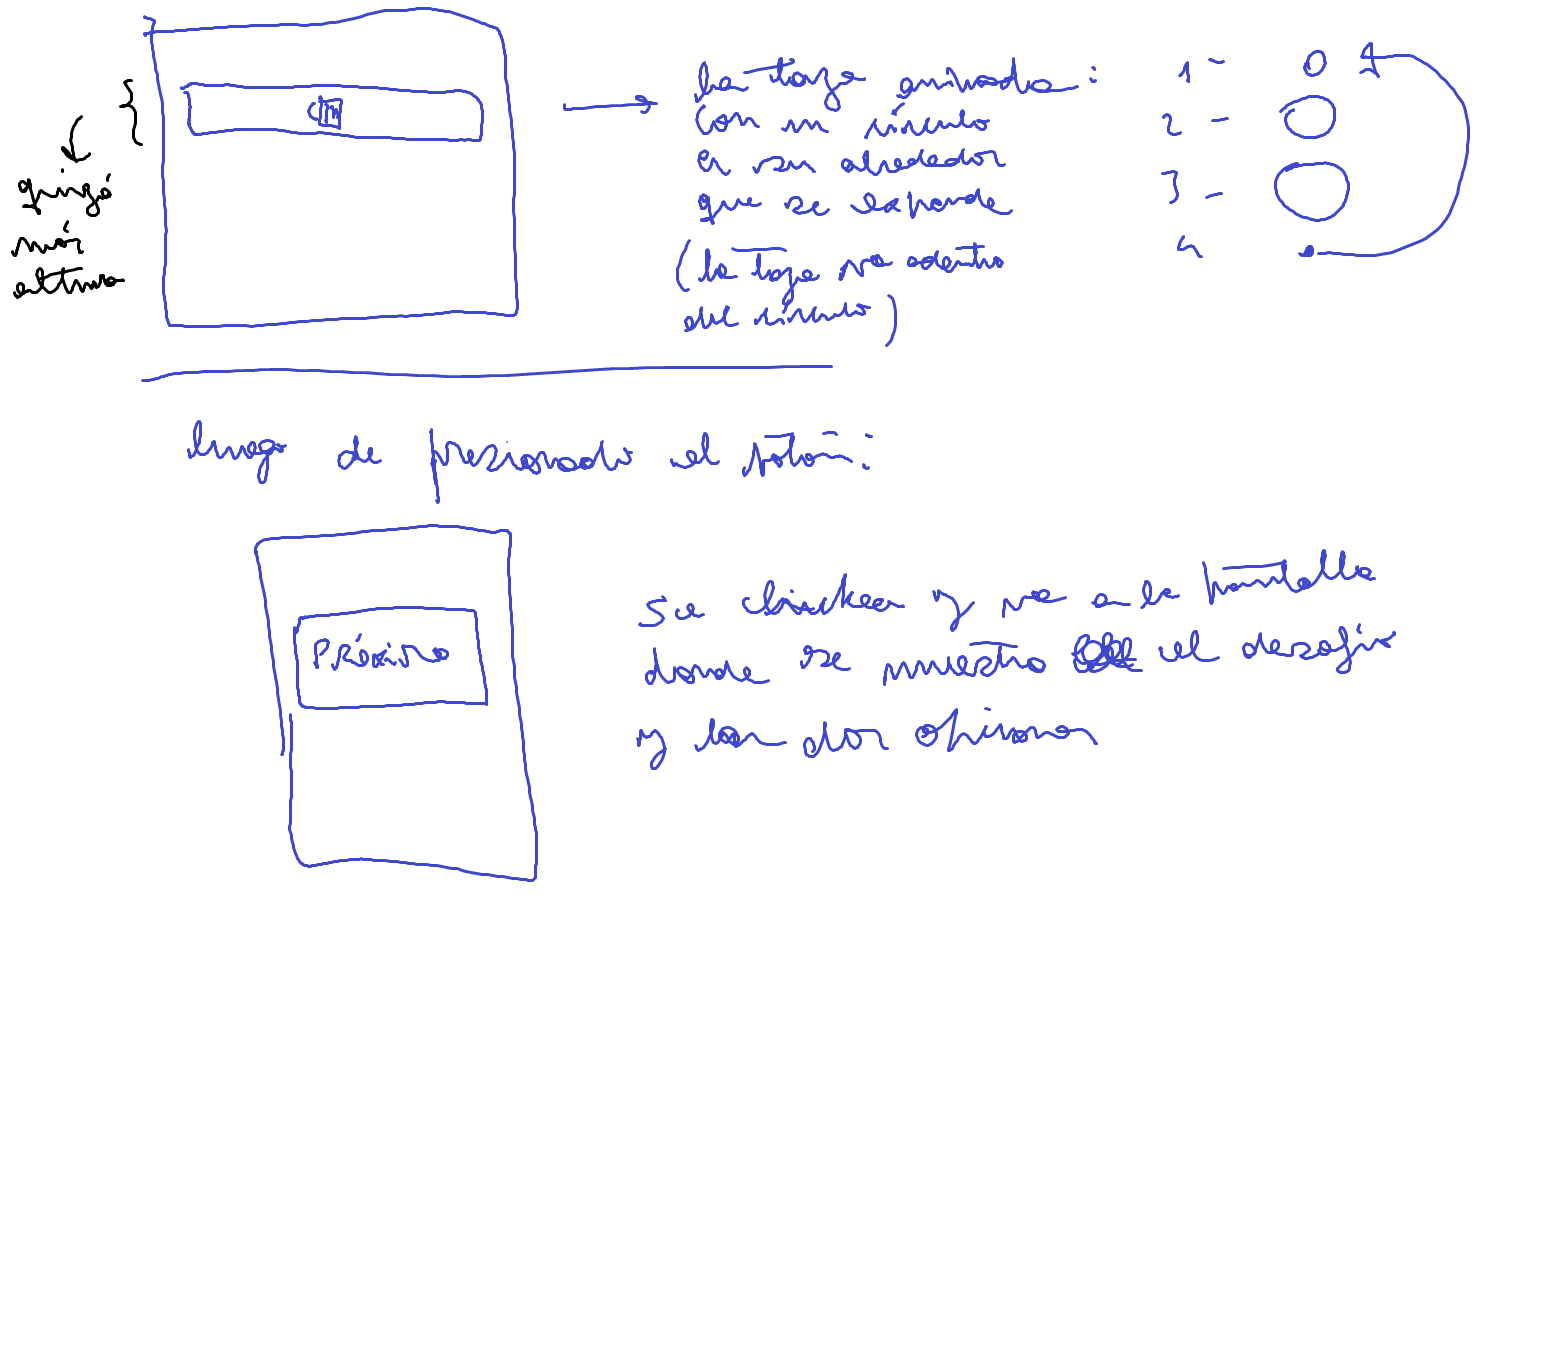 quizá
más
altura
la taza animada:
con un círculo
en su alrededor
que se expande
(la taza va adentro
del círculo)
1 -
2 -
3 -
4
luego de presionado el botón:
Próximo
se clickea y va a la pantalla
donde se muestra el desafío
y las dos opiniones